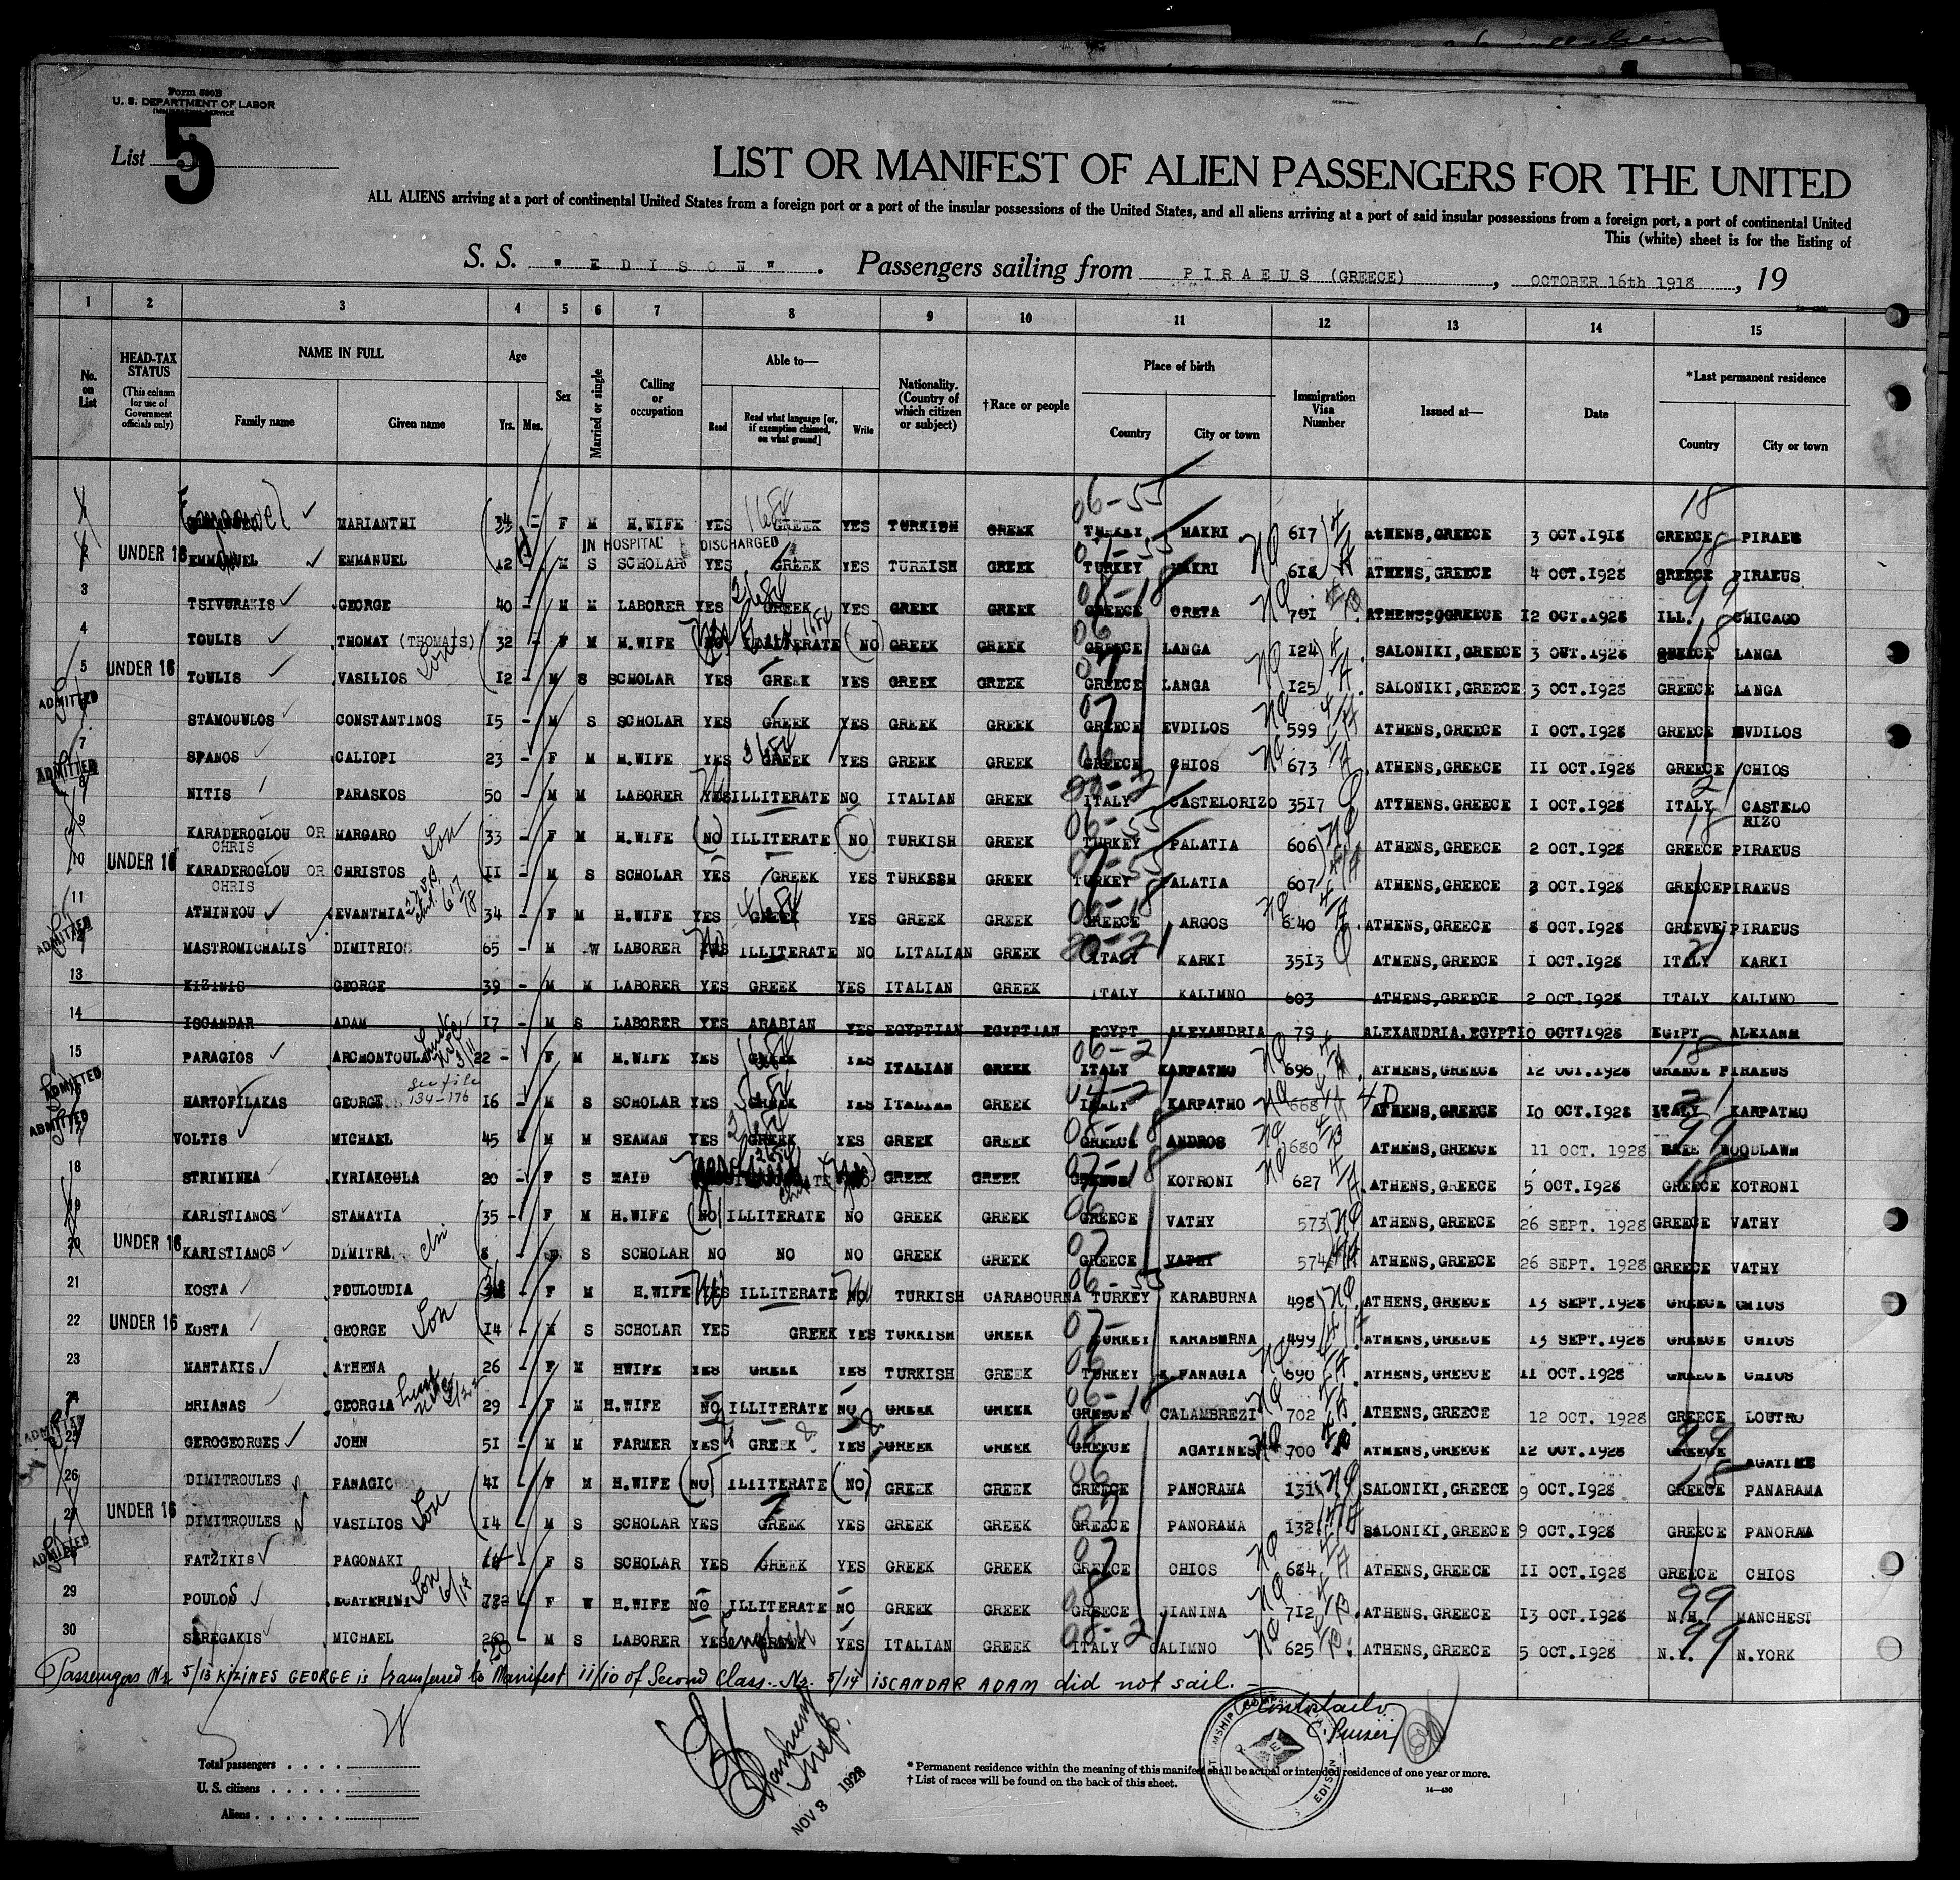 Form 500B
U. S. DEPARTMENT OF LABOR
IMMIGRATION SERVICE
List 5
LIST OR MANIFEST OF ALIEN PASSENGERS FOR THE UNITED
ALL ALIENS arriving at a port of continental United States from a foreign port or a port of the insular possessions of the United States, and all aliens arriving at a port of said insular possessions from a foreign port, a port of continental United
This (white) sheet is for the listing of
S. S. "EDISON". Passengers sailing from PIRAEUS (GREECE), OCTOBER 16th 1918, 19
1 2 3 4 5 6 7 8 9 10 11 12 13 14 15
No. on List HEAD-TAX STATUS (This column for use of Government officials only) NAME IN FULL Family name Given name Age Yrs. Mos. Sex Married or single Calling or occupation Able to— Read Read what language [or, if exemption claimed, on what ground] Write Nationality. (Country of which citizen or subject) †Race or people Place of birth Country City or town Immigration Visa Number Issued at— Date *Last permanent residence Country City or town
1 Emmanuel MARIANTHI 34 - F M H.WIFE YES GREEK YES TURKISH GREEK TURKEY MAKRI 617 atHENS,GREECE 3 OCT.1918 GREECE PIRAEUS
IN HOSPITAL DISCHARGED
2 UNDER 16 EMMANUEL EMMANUEL 12 - M S SCHOLAR YES GREEK YES TURKISH GREEK TURKEY MAKRI 618 ATHENS,GREECE 4 OCT.1928 GREECE PIRAEUS
3 TSIVURAKIS GEORGE 40 - M M LABORER YES GREEK YES GREEK GREEK GREECE CRETA 701 ATHENS,GREECE 12 OCT.1928 ILL. CHICAGO
4 TOULIS THOMAY (THOMAIS) 32 - F M H.WIFE NO ILLITERATE (NO) GREEK GREEK GREECE LANGA 124 SALONIKI,GREECE 3 OCT.1928 GREECE LANGA
5 UNDER 16 TOULIS VASILIOS Son 12 - M S SCHOLAR YES GREEK YES GREEK GREEK GREECE LANGA 125 SALONIKI,GREECE 3 OCT.1928 GREECE LANGA
ADMITTED STAMOUULOS CONSTANTINOS 15 - M S SCHOLAR YES GREEK YES GREEK GREEK GREECE EVDILOS 599 ATHENS,GREECE 1 OCT.1928 GREECE EVDILOS
7 SPANOS CALIOPI 23 - F M H.WIFE YES GREEK YES GREEK GREEK GREECE CHIOS 673 ATHENS,GREECE 11 OCT.1928 GREECE CHIOS
ADMITTED 8 NITIS PARASKOS 50 - M M LABORER YES ILLITERATE NO ITALIAN GREEK ITALY CASTELORIZO 3517 ATTHENS.GREECE 1 OCT.1928 ITALY CASTELO RIZO
9 KARADEROGLOU OR CHRIS MARGARO 33 - F M H.WIFE (NO) ILLITERATE (NO) TURKISH GREEK TURKEY PALATIA 606 ATHENS,GREECE 2 OCT.1928 GREECE PIRAEUS
10 UNDER 16 KARADEROGLOU OR CHRIS CHRISTOS Son 11 - M S SCHOLAR YES GREEK YES TURKSSH GREEK TURKEY PALATIA 607 ATHENS,GREECE 2 OCT.1928 GREECE PIRAEUS
11 ATHINEOU EVANTHIA 34 - F M H.WIFE YES GREEK YES GREEK GREEK GREECE ARGOS 640 ATHENS,GREECE 8 OCT.1928 GREEVE PIRAEUS
ADMITTED 12 MASTROMICHALIS DIMITRIOS 65 - M W LABORER YES ILLITERATE NO LITALIAN GREEK ITALY KARKI 3513 ATHENS,GREECE 1 OCT.1928 ITALY KARKI
13 KIZINIS GEORGE 39 - M M LABORER YES GREEK YES ITALIAN GREEK ITALY KALIMNO 603 ATHENS,GREECE 2 OCT.1928 ITALY KALIMNO
14 ISCANDAR ADAM 17 - M S LABORER YES ARABIAN YES EGYPTIAN EGYPTIAN EGYPT ALEXANDRIA 79 ALEXANDRIA.EGYPT 10 OCT 1928 EGYPT ALEXANH
15 PARAGIOS ARCHONTOULA 22 - F M H.WIFE YES GREEK YES ITALIAN GREEK ITALY KARPATHO 696 ATHENS,GREECE 12 OCT.1928 GREECE PIRAEUS
ADMITTED HARTOFILAKAS GEORGE See file 134-176 16 - M S SCHOLAR YES GREEK YES ITALIAN GREEK ITALY KARPATHO 668 ATHENS,GREECE 10 OCT.1928 ITALY KARPATHO
ADMITTED 17 VOLTIS MICHAEL 45 - M M SEAMAN YES GREEK YES GREEK GREEK GREECE ANDROS 680 ATHENS,GREECE 11 OCT. 1928 WOODLAWN
18 STRIMINEA KYRIAKOULA 20 - F S MAID GREEK GREEK GREECE KOTRONI 627 ATHENS,GREECE 5 OCT.1928 GREECE KOTRONI
19 KARISTIANOS STAMATIA 35 - F M H.WIFE (NO) ILLITERATE NO GREEK GREEK GREECE VATHY 573 ATHENS,GREECE 26 SEPT. 1928 GREECE VATHY
20 UNDER 16 KARISTIANOS DIMITRA 8 - F S SCHOLAR NO NO NO GREEK GREEK GREECE VATHY 574 ATHENS,GREECE 26 SEPT. 1928 GREECE VATHY
21 KOSTA POULOUDIA - F M H.WIFE YES ILLITERATE NO TURKISH CARABOURNA TURKEY KARABURNA 498 ATHENS,GREECE 13 SEPT.1928 GREECE CHIOS
22 UNDER 16 KOSTA GEORGE Son 14 - M S SCHOLAR YES GREEK YES TURKISH GREEK TURKEY KARABURNA 499 ATHENS,GREECE 13 SEPT.1928 GREECE CHIOS
23 MANTAKIS ATHENA 26 - F M HWIFE YES GREEK YES TURKISH GREEK TURKEY K.PANAGIA 690 ATHENS,GREECE 11 OCT.1928 GREECE CHIOS
24 BRIANAS GEORGIA 29 - F M H.WIFE NO ILLITERATE NO GREEK GREEK GREECE CALAMBREZI 702 ATHENS,GREECE 12 OCT. 1928 GREECE LOUTRO
ADMITTED 25 GEROGEORGES JOHN 51 - M M FARMER YES GREEK YES GREEK GREEK GREECE AGATINES 700 ATHENS,GREECE 12 OCT.1928 GREECE AGATINE
26 DIMITROULES PANAGIO 41 - F M H.WIFE (NO) ILLITERATE (NO) GREEK GREEK GREECE PANORAMA 131 SALONIKI,GREECE 9 OCT.1928 GREECE PANARAMA
27 UNDER 16 DIMITROULES VASILIOS Son 14 - M S SCHOLAR YES GREEK YES GREEK GREEK GREECE PANORAMA 132 SALONIKI,GREECE 9 OCT.1928 GREECE PANORAMA
ADMITTED FATZIKIS PAGONAKI - F S SCHOLAR YES GREEK YES GREEK GREEK GREECE CHIOS 684 ATHENS,GREECE 11 OCT.1928 GREECE CHIOS
29 POULOS EGATERINI Son 6/17 F W H.WIFE NO ILLITERATE NO GREEK GREEK GREECE JIANINA 712 ATHENS.GREECE 13 OCT.1928 N.H. MANCHEST
30 SEREGAKIS MICHAEL - M S LABORER YES english GREEK YES ITALIAN GREEK ITALY CALIMNO 625 ATHENS,GREECE 5 OCT.1928 N.Y. N.YORK
Passengers Nr 5/13 KIZINES GEORGE is transferred to Manifest ii/10 of Second Class. Nr. 5/14 ISCANDAR ADAM did not sail.
Total passengers
U. S. citizens
Aliens
NOV 8 1928
* Permanent residence within the meaning of this manifest shall be actual or intended residence of one year or more.
† List of races will be found on the back of this sheet.
14—430
EDISON